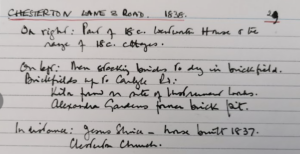 CHESTERTON LANE & ROAD. 1838. 29
On right: Part of 18c. House & the
range of 18c. cottages.
On left: Men stacking bricks to dry in brickfield.
Brickfields up to Carlyle Rd:
Kiln now on site of Lanes.
Alexandra Gardens former brick pit.
In distance: Jesus Sluice – house built 1837.
Chesterton Church.